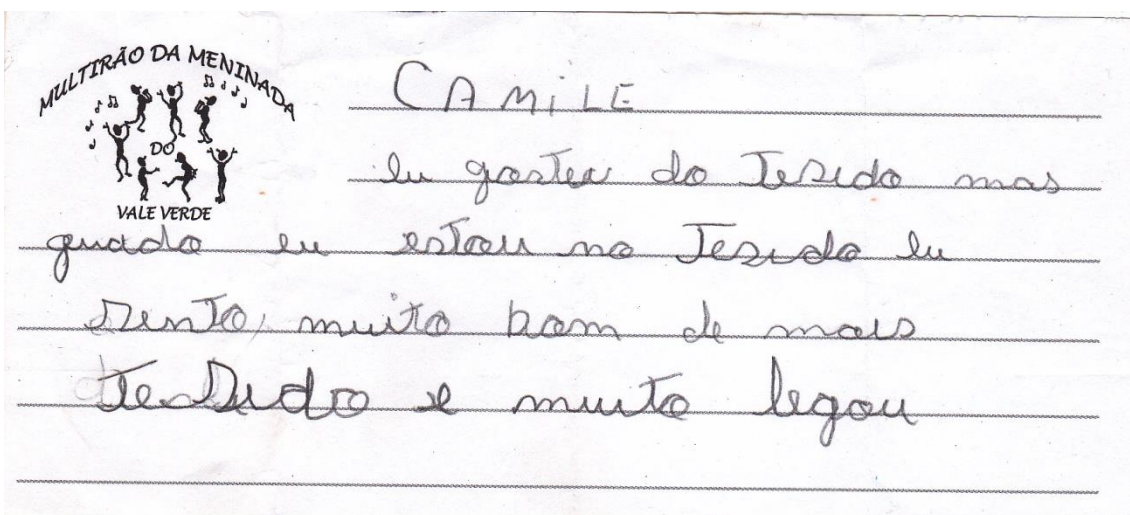 MULTIRÃO DA MENINADA
DO
VALE VERDE
CAMiLE
eu gostei do Tesido mas
quado eu estou no Tesido eu
sinto, muito bom de mais
Tessido e muito legou